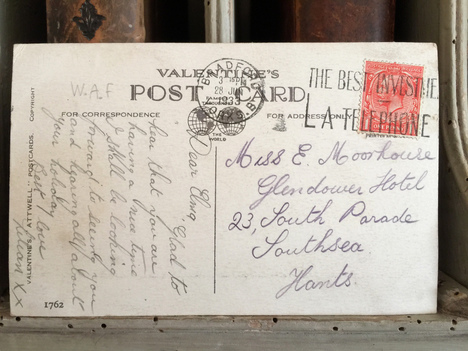 VALENTINE'S
POST CARD
W.A.F
FOR CORRESPONDENCE
FOR ADDRESS ONLY
COPYRIGHT
VALENTINE'S "ATTWELL" POSTCARDS.
1762
FAMOUS
THROUGHOUT
THE
WORLD
BRADFORD
28 JUN
1933
YORKS.
THE BEST INVESTME
A TELEPHONE
Dear
Glad to
hear that you are
having a nice time
I shall be looking
forward to seeing you
and hearing all about
your holiday
Best love
Lilian XX
Miss E. Moorhouse
Glendower Hotel
23, South Parade
Southsea.
Hants.